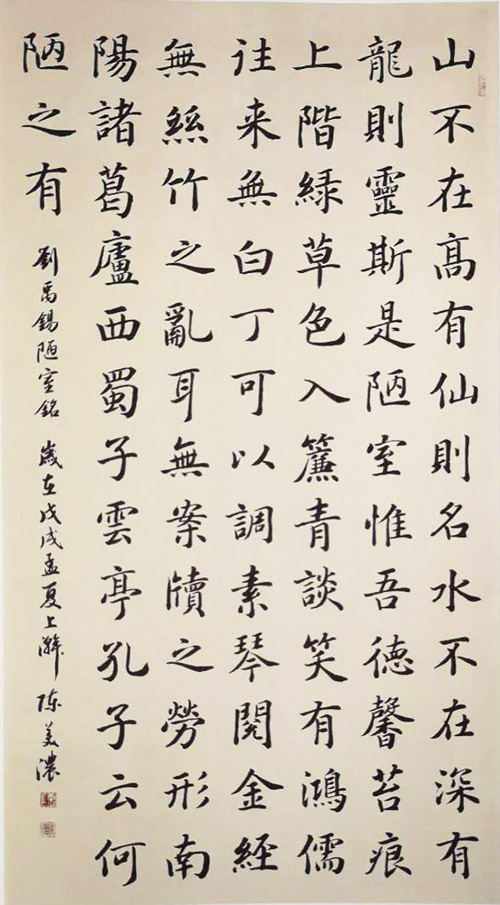 山不在髙有仙則名水不在深有
龍則靈斯是陋室惟吾德馨苔痕
上階緑草色入簾青談笑有鴻儒
往来無白丁可以調素琴閱金經
無絲竹之亂耳無案牘之勞形南
陽諸葛廬西蜀子雲亭孔子云何
陋之有
劉禹錫陋室銘 歲在戊戌孟夏上澣 陈美濃